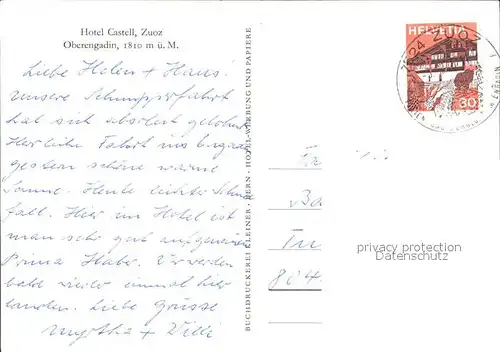 Hotel Castell, Zuoz
Oberengadin, 1810 m ü. M.
Liebe Helen + Hans!
Unsere Schnupperfahrt
hat sich absolut gelohnt
Herrliche Fahrt ins Engadin
gestern schöne warme
Sonne. Heute leichter Schnee
fall. Hier im Hotel ist
man sehr gut aufgehoben
Prima Haber. Wir werden
bald wieder einmal hier
landen. Liebe Grüsse
Myrtha + Willi
BUCHDRUCKEREI KLEINER · BERN · HOTEL-WERBUNG UND PAPIERE
HELVETIA
30
7524 ZUOZ
ENGADIN
Fr
Ba
804
privacy protection
AnsichtskartenCenter